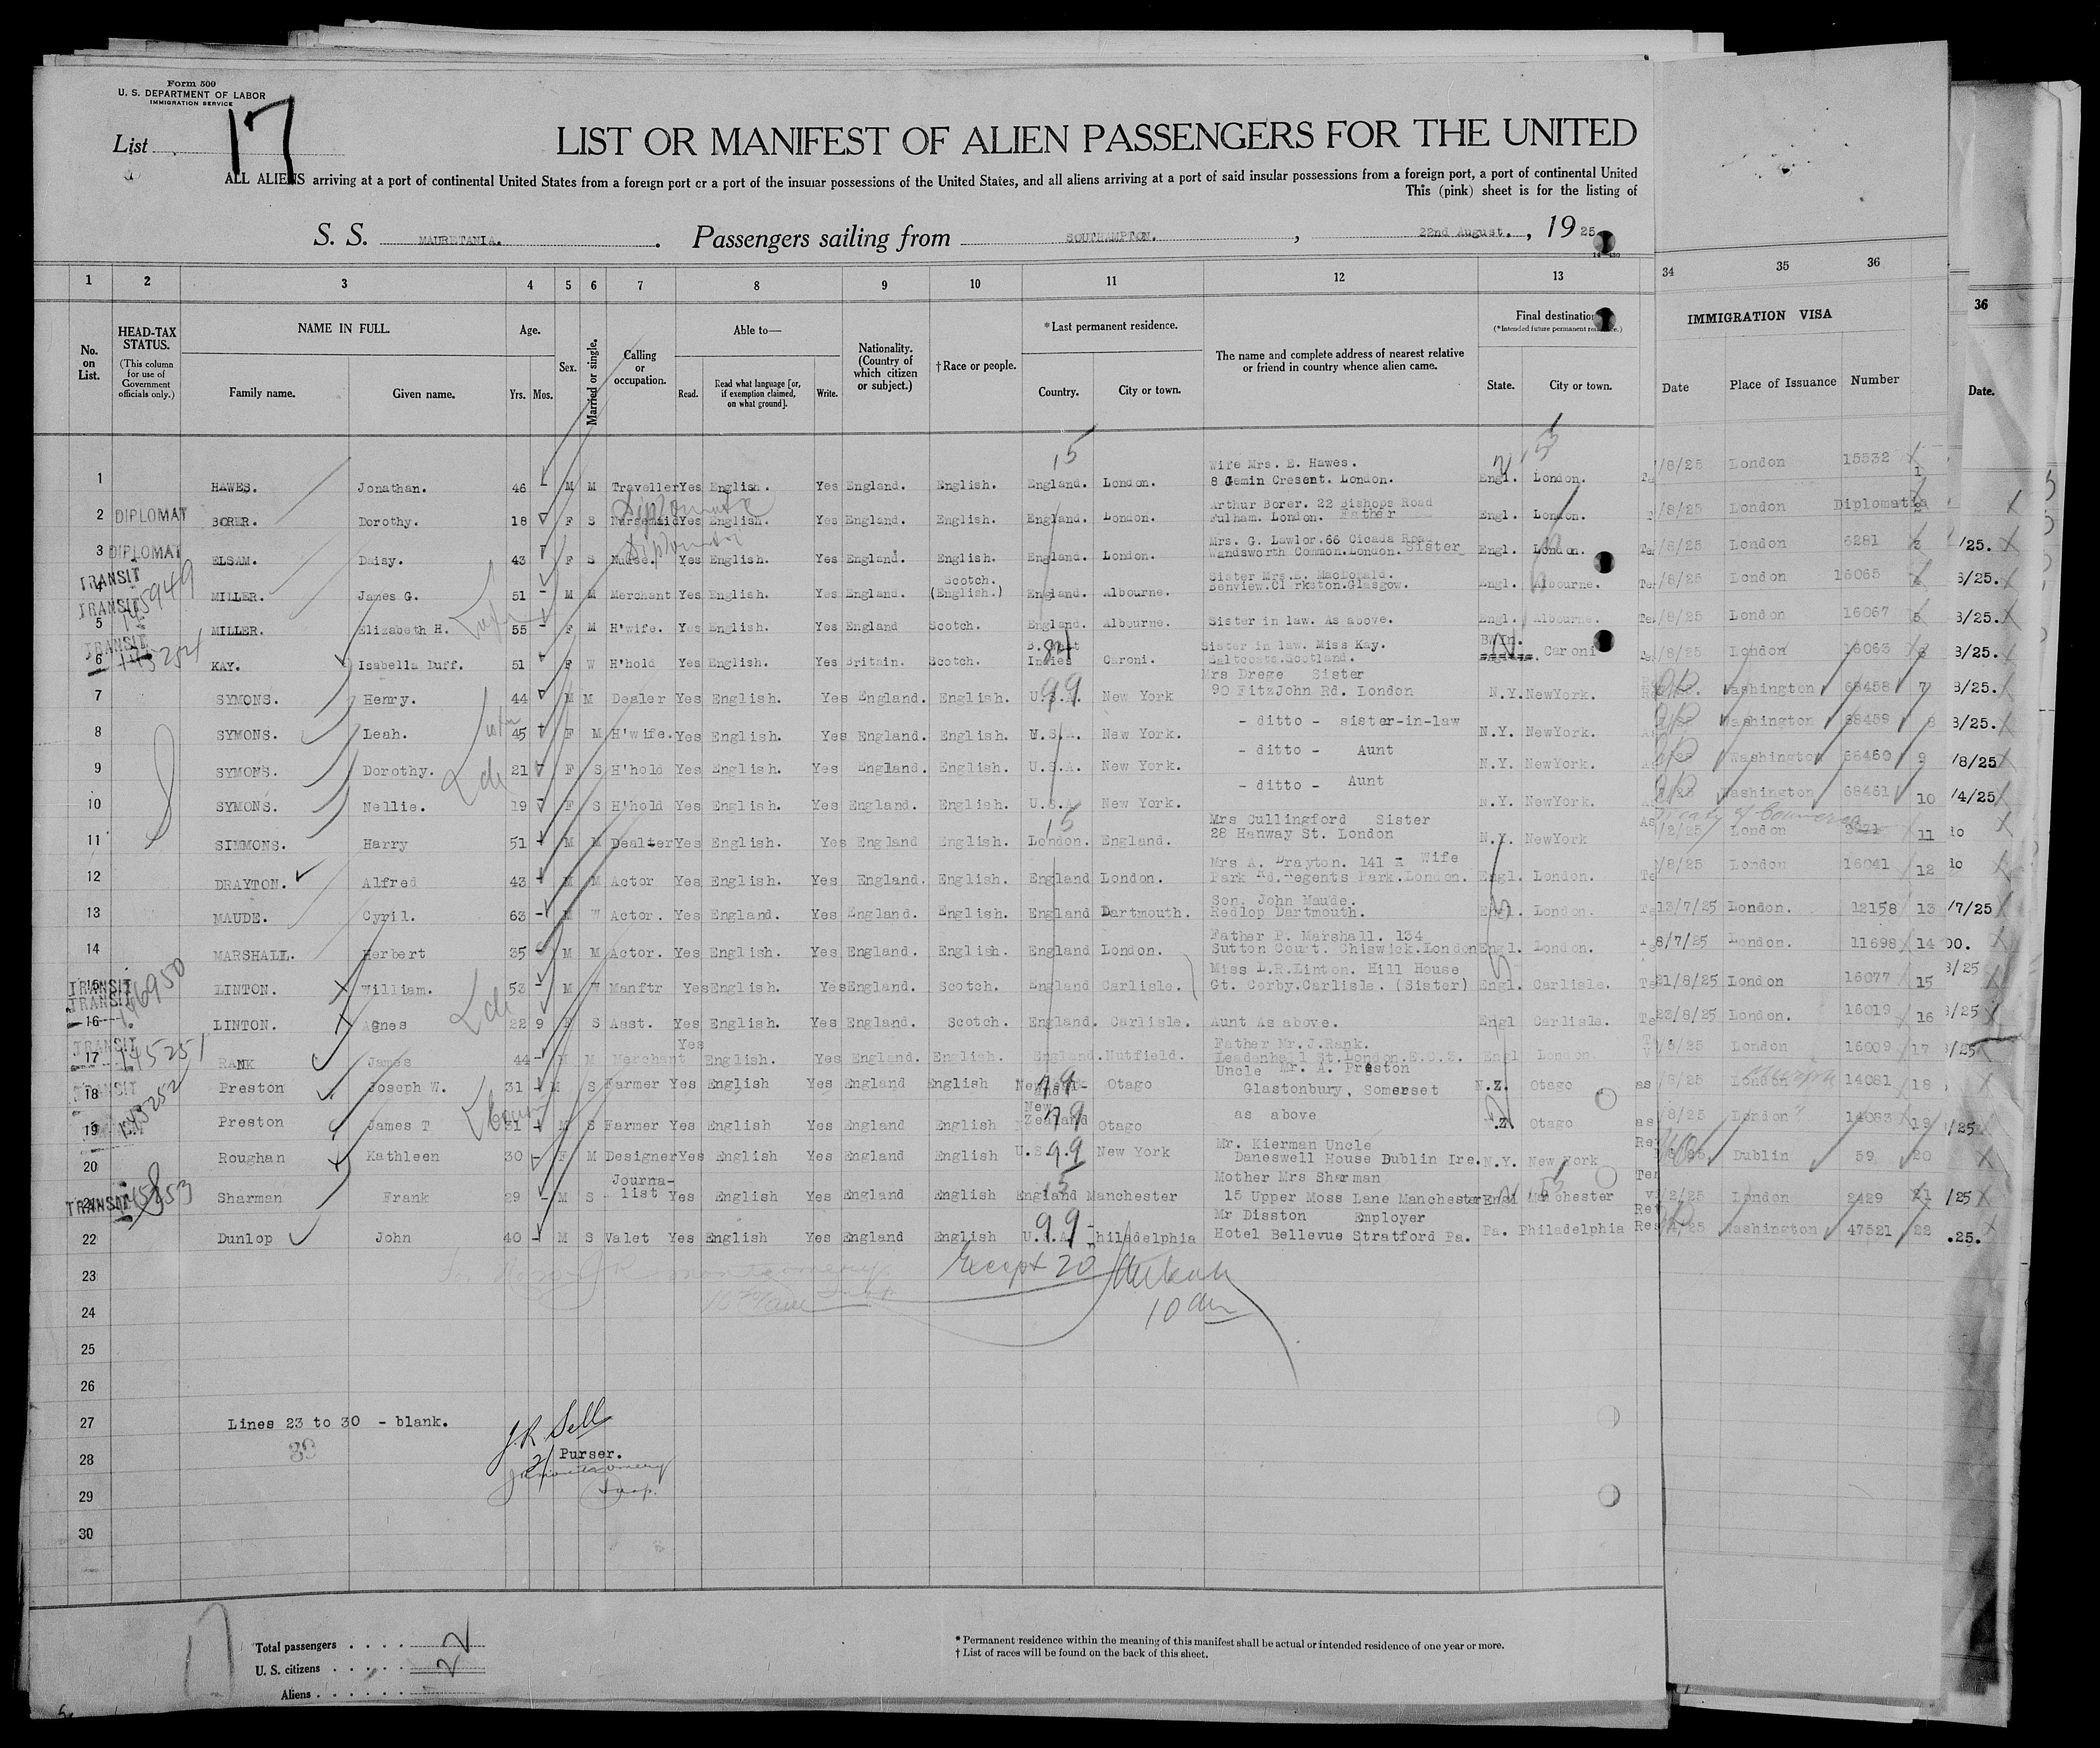 Form 500
U. S. DEPARTMENT OF LABOR
IMMIGRATION SERVICE
List 17
LIST OR MANIFEST OF ALIEN PASSENGERS FOR THE UNITED
ALL ALIENS arriving at a port of continental United States from a foreign port or a port of the insular possessions of the United States, and all aliens arriving at a port of said insular possessions from a foreign port, a port of continental United
This (pink) sheet is for the listing of
S. S. MAURETANIA. Passengers sailing from SOUTHAMPTON. , 22nd August. , 19 25
1 2 3 4 5 6 7 8 9 10 11 12 13 34 35 36
No. on List.
HEAD-TAX STATUS.
(This column for use of Government officials only.)
NAME IN FULL.
Family name. Given name.
Age.
Yrs. Mos.
Sex.
Married or single.
Calling or occupation.
Able to—
Read. Read what language [or, if exemption claimed, on what ground]. Write.
Nationality. (Country of which citizen or subject.)
†Race or people.
*Last permanent residence.
Country. City or town.
The name and complete address of nearest relative or friend in country whence alien came.
Final destination
State. City or town.
IMMIGRATION VISA
Date Place of Issuance Number
36
Date.
15
Wife Mrs. E. Hawes.
1 HAWES. Jonathan. 46 - M M Traveller Yes English. Yes England. English. England. London. 8 Jemin Cresent. London. Engl. London. /8/25 London 15532 1
Diplomat
Arthur Borer. 22 Bishops Road
2 DIPLOMAT BORER. Dorothy. 18 F S Nursemaid Yes English. Yes England. English. England. London. Fulham. London. Father Engl. London. /8/25 London Diplomat
Diplomat
Mrs. G. Lawlor. 66 Cicada Road
3 DIPLOMAT ELSAM. Daisy. 43 F S Nurse. Yes English. Yes England. English. England. London. Wandsworth Common. London. Sister Engl. London. /8/25 London 6281 3 /25.
TRANSIT
Scotch.
Sister Mrs. E. MacDonald.
4 MILLER. James G. 51 - M M Merchant Yes English. Yes England. (English.) England. Albourne. Benview. Cl rkston. Glasgow. Engl. Albourne. /8/25 London 16065 4 8/25.
TRANSIT 145949
5 MILLER. Elizabeth H. 55 - F M H'wife. Yes English. Yes England Scotch. England. Albourne. Sister in law. As above. Engl. Albourne. /8/25 London 16067 5 8/25.
TRANSIT 145254
B. West Sister in law. Miss Kay.
6 KAY. Isabella Duff. 51 F W H'hold Yes English. Yes Britain. Scotch. Indies Caroni. Saltcoats. Scotland. Caroni /8/25 London 16063 6 8/25.
Mrs Drege Sister
7 SYMONS. Henry. 44 M M Dealer Yes English. Yes England. English. U.S.A. 99 New York 90 FitzJohn Rd. London N.Y. NewYork. Washington 68458 7 8/25.
8 SYMONS. Leah. 45 F M H'wife. Yes English. Yes England. English. U.S.A. New York. - ditto - sister-in-law N.Y. NewYork. Washington 68459 8 8/25.
9 SYMONS. Dorothy. 21 F S H'hold Yes English. Yes England. English. U.S.A. New York. - ditto - Aunt N.Y. NewYork. Washington 68460 9 /8/25
10 SYMONS. Nellie. 19 F S H'hold Yes English. Yes England. English. U.S.A. New York. - ditto - Aunt N.Y. NewYork. Washington 68461 10 /4/25
15 Mrs Cullingford Sister Treaty of Commerce
11 SIMMONS. Harry 51 M M Dealter Yes English. Yes England English. London. England. 28 Hanway St. London N.Y. NewYork /2/25 London 11
Mrs A. Drayton. 141 Wife
12 DRAYTON. Alfred 43 M M Actor Yes English. Yes England. English. England London. Park Rd. Regents Park. London. Engl. London. /8/25 London 16041 12
Son. John Maude.
13 MAUDE. Cyril. 63 - M W Actor. Yes England. Yes England. English. England Dartmouth. Redlop Dartmouth. Engl. London. 13/7/25 London. 12158 13 /7/25
Father P. Marshall. 134
14 MARSHALL. Herbert 35 - M M Actor. Yes English. Yes England. English. England London. Sutton Court. Chiswick. London Engl. London. 8/7/25 London. 11698 14
Miss L.R. Linton. Hill House 8/25
15 TRANSIT LINTON. William. 53 - M W Manftr Yes English. Yes England. Scotch. England Carlisle. Gt. Corby. Carlisle. (Sister) Engl. Carlisle. 21/8/25 London 16077 15
TRANSIT 146950
16 LINTON. Agnes 22 9 F S Asst. Yes English. Yes England. Scotch. England. Carlisle. Aunt As above. Engl Carlisle. 23/8/25 London. 16019 16 8/25
TRANSIT 145251
Father Mr. J. Rank.
17 RANK James 44 - M M Merchant Yes English. Yes England. English. England. Nutfield. Leadenhall St. London. E.C.3. Engl London. /8/25 London 16009 17 /25
Uncle Mr. A. Preston
18 TRANSIT Preston Joseph W. 31 M S Farmer Yes English Yes England English New Zealand 79 Otago Glastonbury, Somerset N.Z. Otago as /8/25 London 14081 18
145252
19 Preston James T 31 M S Farmer Yes English Yes England English New Zealand 79 Otago as above N.Z Otago as /8/25 London 14083 19 /25
Mr. Kierman Uncle
20 Roughan Kathleen 30 F M Designer Yes English Yes England English U.S. 99 New York Daneswell House Dublin Ire. N.Y. New York Dublin 59 20
Journa- Mother Mrs Sharman
21 TRANSIT 145253 Sharman Frank 29 - M S list Yes English Yes England English England Manchester 15 Upper Moss Lane Manchester Engl Manchester /2/25 London 2429 21 /25
Mr Disston Employer
22 Dunlop John 40 - M S Valet Yes English Yes England English U.S.A. 99 Philadelphia Hotel Bellevue Stratford Pa. Pa. Philadelphia Washington 47521 22 .25.
23 Except 20
24 10 am
25
26
27 Lines 23 to 30 - blank.
J.R. Sell
28 Purser.
JRMontgomery
29 Insp.
30
17
Total passengers . . . .
U. S. citizens . . . . .
Aliens . . . . . .
22
* Permanent residence within the meaning of this manifest shall be actual or intended residence of one year or more.
† List of races will be found on the back of this sheet.